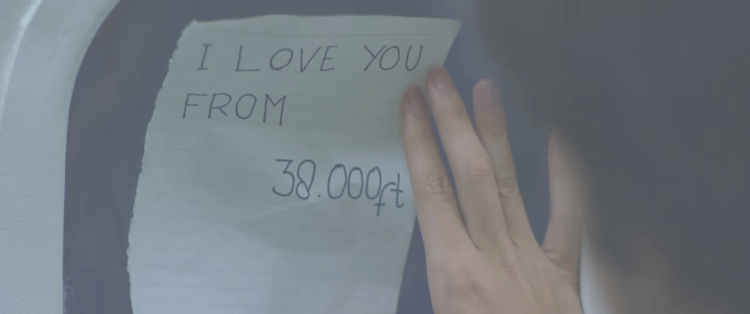 I LOVE YOU
FROM
38.000ft